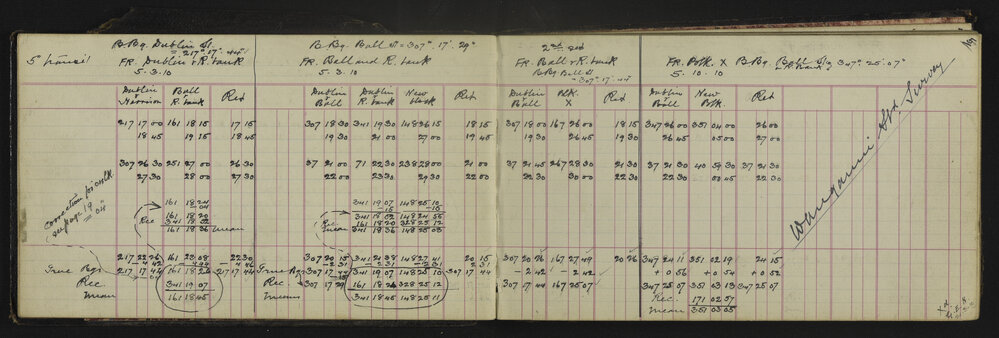 5" transit
B Bg. Dublin St.
= 217° 17'
FR. Dublin & R. tank
5. 3. 10
Dublin
Harrison
Ball
R. tank
Ret
217 17 00 161 18 15 17 15
18 45 19 15 18 45
307 26 30 251 27 00 26 30
27 30 28 00 27 30
correction for
see page 19
161 18 24
161 18 20
Rec 341 18 52
161 18 36 mean
217 22 26 161 23 08 22 30
True Bgs 217 17 44 161 18 24 217 17 44
Rec 341 19 07
Mean 161 18 45
B Bg. Ball St = 307° 17' 29"
FR. Ball and R. tank
5. 3. 10
Dublin
Ball
Dublin
R. tank
New
Ret
307 18 30 341 19 30 148 26 15 18 15
19 30 21 00 27 00 19 45
37 21 00 71 22 30 238 28 00 21 00
22 00 23 30 29 30 22 30
341 19 07 148 25 10
-15 -15
341 18 52 148 24 55
Rec 161 18 20 328 25 12
mean 341 18 36 148 25 03
307 20 15 341 21 38 148 27 41 20 15
-2 31 -2 31 -2 31 2 31
True Bgs 307 17 44 341 19 07 148 25 10 307 17 44
Rec. 307 17 29 161 18 24 328 25 12
Mean 341 18 45 148 25 11
2nd set
FR. Ball & R. tank
B Bg Ball St
= 307° 17' 44"
Dublin
Ball
Pk.
X
Ret
307 18 00 167 26 00 18 15
19 30 26 45 19 30
37 21 45 167 28 30 21 30
22 30 30 00 22 30
307 20 26 167 27 49 20 26
-2 42 -2 42
307 17 44 167 25 07
FR. Pk X B Bg Ball St 347° 25' 07"
5. 10. 10
Dublin
Ball
New
Pk.
Ret
347 26 00 351 04 00 26 00
26 45 05 00 27 00
37 21 30 40 59 30 37 21 30
22 30 00 45 22 30
347 24 11 351 02 19 24 15
+0 56 +0 54 +0 52
347 25 07 351 03 13 347 25 07
Rec. 171 02 57
mean 351 03 05
Wanganui Std Survey